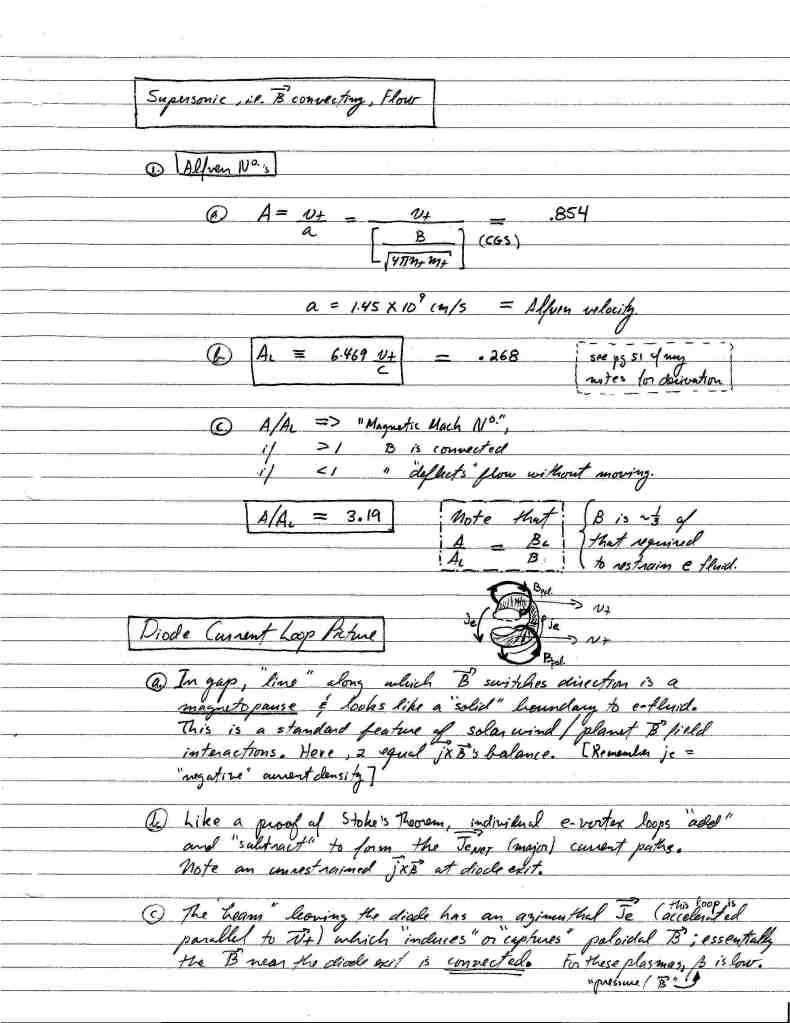 Supersonic, i.e. B⃗ convecting, Flow
① Alfven Nº.'s
ⓐ A = v₊/a = v₊/[B/√(4πn₊m₊)] (CGS) = .854
a = 1.45 X 10⁹ cm/s = Alfven velocity.
ⓑ A_L ≡ 6.469 v₊/c = .268
see pg 51 of my
notes for derivation
ⓒ A/A_L => "Magnetic Mach Nº.",
if >1 B is convected
if <1 " "deflects" flow without moving.
A/A_L = 3.19
Note that
A/A_L = B_L/B
B is ~⅓ of
that required
to restrain e fluid.
B_pol.
v₊
Je
Je
v₊
B_pol.
Diode Current Loop Picture
ⓐ In gap, "line" along which B⃗ switches direction is a
magnetopause & looks like a "solid" boundary to e-fluid.
This is a standard feature of solar wind / planet B⃗ field
interactions. Here, 2 equal j⃗xB⃗'s balance. [Remember je =
"negative" current density]
ⓑ Like a proof of Stoke's Theorem, individual e-vortex loops "add"
and "subtract" to form the J⃗e_NET (major) current paths.
Note an unrestrained j⃗xB⃗ at diode exit.
ⓒ The "beam" leaving the diode has an azimuthal J⃗e (this loop is accelerated
parallel to v⃗₊) which "induces" or "captures" poloidal B⃗; essentially
the B⃗ near the diode exit is convected. For these plasmas, β is low.
"pressure / B⃗"